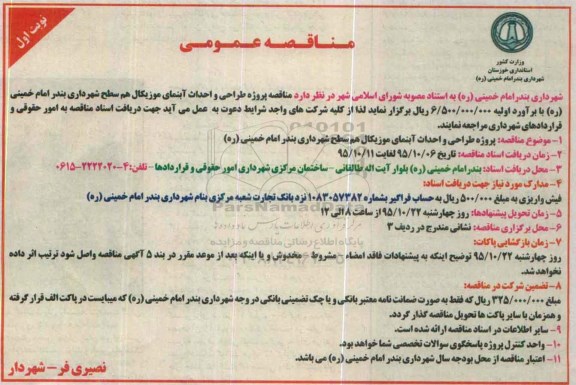 نوبت اول
مناقصه عمومی
وزارت کشور
استانداری خوزستان
شهرداری بندرامام خمینی (ره)
شهرداری بندرامام خمینی (ره) به استناد مصوبه شورای اسلامی شهر در نظر دارد مناقصه پروژه طراحی و احداث آبنمای موزیکال هم سطح شهرداری بندر امام خمینی
(ره) با برآورد اولیه ۶/۵۰۰/۰۰۰/۰۰۰ ریال برگزار نماید لذا از کلیه شرکت های واجد شرایط دعوت به عمل می آید جهت دریافت اسناد مناقصه به امور حقوقی و
قراردادهای شهرداری مراجعه نمایند.
۱- موضوع مناقصه: پروژه طراحی و احداث آبنمای موزیکال هم سطح شهرداری بندر امام خمینی (ره)
۲- زمان دریافت اسناد مناقصه: تاریخ ۹۵/۱۰/۰۶ لغایت ۹۵/۱۰/۱۱
۳- محل دریافت اسناد: بندرامام خمینی (ره) بلوار آیت اله طالقانی - ساختمان مرکزی شهرداری امور حقوقی و قراردادها - تلفن: ۴-۲۲۲۲۰۲۰-۰۶۱۵
۴- مدارک مورد نیاز جهت دریافت اسناد:
فیش واریزی به مبلغ ۵۰۰/۰۰۰ ریال به حساب فراگیر بشماره ۱۰۸۳۰۵۷۳۸۲ نزد بانک تجارت شعبه مرکزی بنام شهرداری بندر امام خمینی (ره)
۵- زمان تحویل پیشنهادها: روز چهارشنبه ۹۵/۱۰/۲۲ از ساعت ۸ الی ۱۲
۶- محل برگزاری مناقصه: نشانی مندرج در ردیف ۳
۷- زمان بازگشایی پاکات:
روز چهارشنبه ۹۵/۱۰/۲۲ توضیح اینکه به پیشنهادات فاقد امضاء، مشروط، مخدوش و یا اینکه بعد از موعد مقرر در بند ۵ آگهی مناقصه واصل شود ترتیب اثر داده
نخواهد شد.
۸- تضمین شرکت در مناقصه:
مبلغ ۳۲۵/۰۰۰/۰۰۰ ریال که فقط به صورت ضمانت نامه معتبر بانکی و یا چک تضمینی بانکی در وجه شهرداری بندر امام خمینی (ره) که میبایست در پاکت الف قرار گرفته
و همزمان با سایر پاکت ها تحویل مناقصه گذار گردد.
۹- سایر اطلاعات در اسناد مناقصه ارائه شده است.
۱۰- واحد کنترل پروژه پاسخگوی سوالات تخصصی شما خواهد بود.
۱۱- اعتبار مناقصه از محل بودجه سال شهرداری بندر امام خمینی (ره) می باشد.
نصیری فر - شهردار
ParsNamadData
پایگاه اطلاع رسانی مناقصه و مزایده